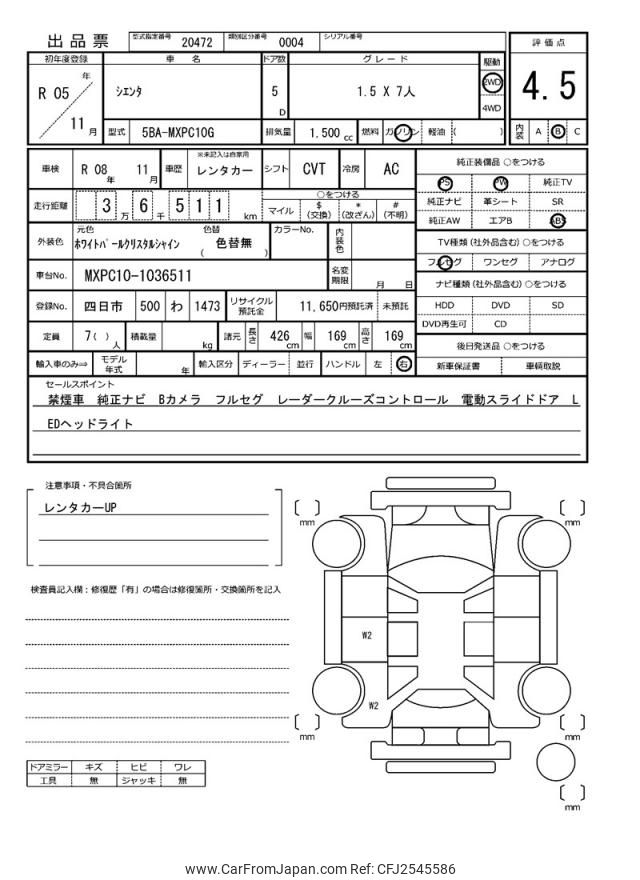 出品票 型式指定番号 20472 類別区分番号 0004 シリアル番号
評価点
4.5
内装 A B C
初年度登録 車名 ドア数 グレード 駆動
R 05 年 11 月 シエンタ 5 D 1.5 X 7人 2WD 4WD
型式 5BA-MXPC10G 排気量 1.500 cc 燃料 ガソリン 軽油 ( )
車検 R 08 年 11 月 車歴 ※未記入は自家用 レンタカー シフト CVT 冷房 AC
走行距離 3 万 6 千 5 1 1 km
○をつける
マイル $ (交換) * (改ざん) # (不明)
外装色 元色 ホワイトパールクリスタルシャイン 色替 ( 色替無 ) カラーNo. 内装色
車台No. MXPC10-1036511 名変期限 月 日
登録No. 四日市 500 わ 1473 リサイクル預託金 11,650円預託済 未預託
定員 7( ) 人 積載量 kg 諸元 長さ 426 cm 幅 169 cm 高さ 169 cm
輸入車のみ⇒ モデル年式 年 輸入区分 ディーラー 並行 ハンドル 左 右
純正装備品 ○をつける
PS PW 純正TV
純正ナビ 革シート SR
純正AW エアB ABS
TV種類 (社外品含む) ○をつける
フルセグ ワンセグ アナログ
ナビ種類 (社外品含む) ○をつける
HDD DVD SD
DVD再生可 CD
後日発送品 ○をつける
新車保証書 車輌取説
セールスポイント
禁煙車 純正ナビ Bカメラ フルセグ レーダークルーズコントロール 電動スライドドア L
EDヘッドライト
注意事項・不具合箇所
レンタカーUP
検査員記入欄：修復歴「有」の場合は修復箇所・交換箇所を記入
ドアミラー キズ ヒビ ワレ
工具 無 ジャッキ 無
mm
mm
W2
W2
mm
mm
mm
www.CarFromJapan.com Ref: CFJ2545586